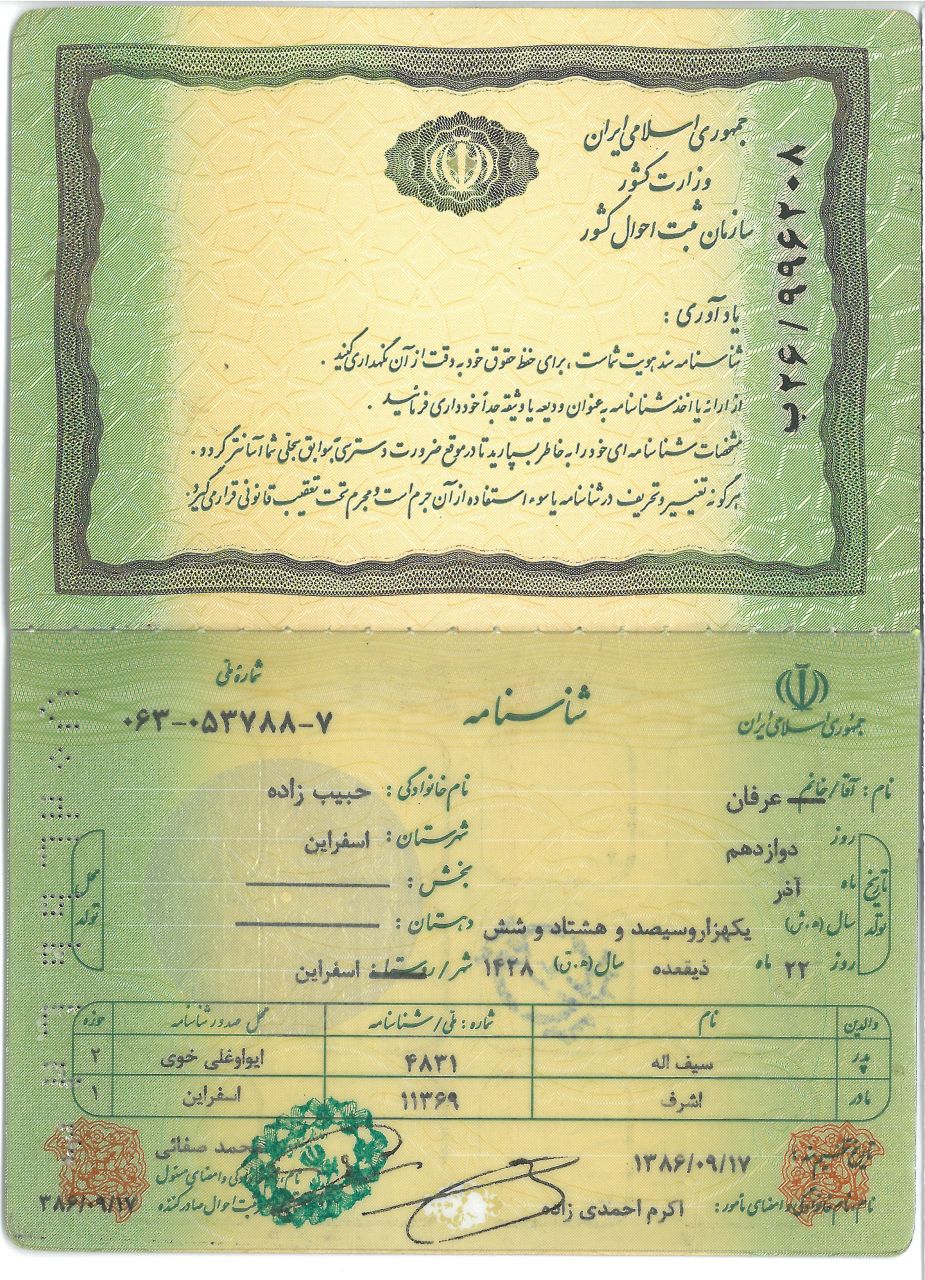 جمهوری اسلامی ایران
وزارت کشور
سازمان ثبت احوال کشور
ب۲۶/۹۹۶۲۰۸
یادآوری :
شناسنامه سند هویت شماست ، برای حفظ حقوق خود به دقت از آن نگهداری کنید .
از ارائه یا اخذ شناسنامه به عنوان ودیعه یا وثیقه جداً خودداری فرمائید .
مشخصات شناسنامه ای خود را به خاطر بسپارید تا در موقع ضرورت دسترسی بسوابق سجلی شما آسانتر گردد .
هرگونه تغییر و تحریف در شناسنامه یا سوء استفاده از آن جرم است و مجرم تحت تعقیب قانونی قرار می گیرد.
جمهوری اسلامی ایران
شناسنامه
شماره ملی
۰۶۳-۰۵۳۷۸۸-۷
نام : آقا/خانم عرفان نام خانوادگی : حبیب زاده
تاریخ تولد
روز دوازدهم
ماه آذر
سال (ه.ش) یکهزاروسیصد و هشتاد و شش
روز ۲۲ ماه ذیقعده سال (ه.ق) ۱۴۲۸
محل تولد
شهرستان : اسفراین
بخش :
دهستان :
شهر/روستا : اسفراین
والدین نام شماره : ملی/شناسنامه محل صدور شناسنامه حوزه
پدر سیف اله ۴۸۳۱ ایواوغلی خوی ۲
مادر اشرف ۱۱۳۶۹ اسفراین ۱
تاریخ تنظیم سند : ۱۳۸۶/۰۹/۱۷
نام ، نام خانوادگی و امضای مأمور : اکرم احمدی زاده
صفائی
نام ، خانوادگی و امضای مسئول
ثبت احوال صادرکننده
۳۸۶/۰۹/۱۷